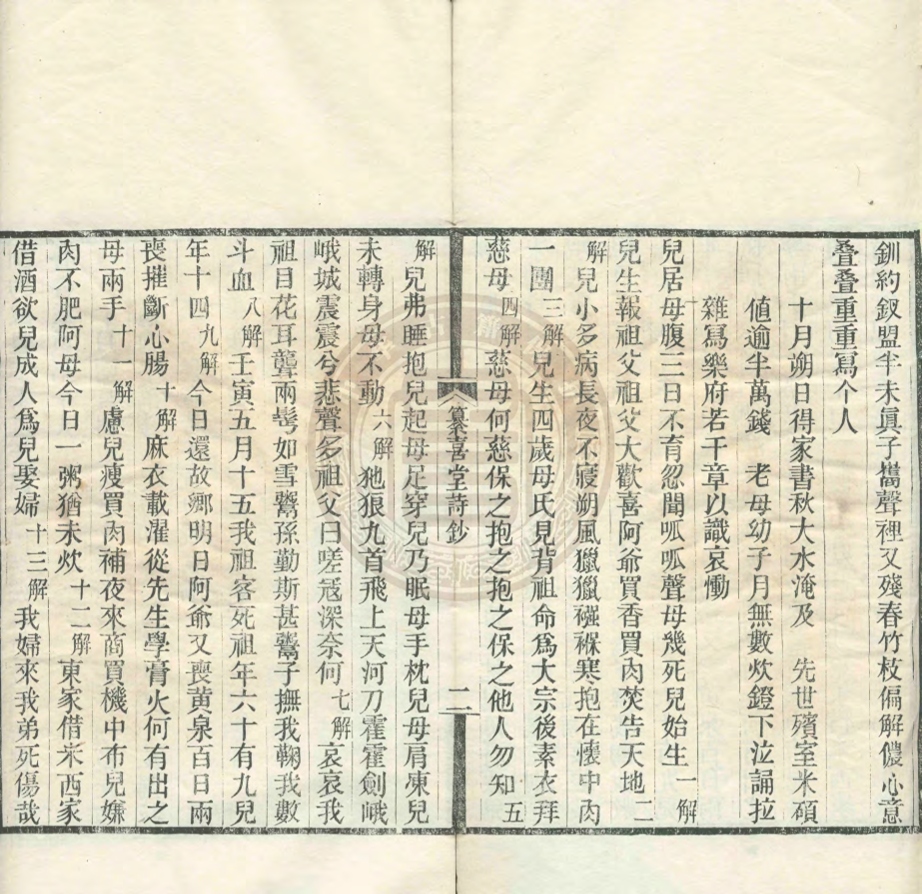 釧約釵盟半未眞子巂聲裡又殘春竹枝偏解儂心意
叠叠重重寫个人
十月朔日得家書秋大水淹及　先世殯室米碩
値逾半萬錢　老母幼子月無數炊鐙下泣誦拉
雜寫樂府若干章以識哀慟
兒居母腹三日不育忽聞呱呱聲母幾死兒始生一解
兒生報祖父祖父大歡喜阿爺買香買肉焚告天地二
解兒小多病長夜不寢朔風獵獵襁褓寒抱在懷中肉
一團三解兒生四歲母氏見背祖命爲大宗後素衣拜
慈母四解慈母何慈保之抱之抱之保之他人勿知五
纂喜堂詩鈔　二
解兒弗睡抱兒起母足穿兒乃眠母手枕兒母肩凍兒
未轉身母不動六解虵狼九首飛上天河刀霍霍劍峨
峨城震震兮悲聲多祖父曰嗟寇深奈何七解哀哀我
祖目花耳聾兩髩如雪鬻孫勤斯甚鬻子撫我鞠我數
斗血八解壬寅五月十五我祖客死祖年六十有九兒
年十四九解今日還故鄉明日阿爺又喪黄泉百日兩
喪摧斷心腸十解麻衣載濯從先生學膏火何有出之
母兩手十一解慮兒瘦買肉補夜來商買機中布兒嫌
肉不肥阿母今日一粥猶未炊十二解東家借米西家
借酒欲兒成人爲兒娶婦十三解我婦來我弟死傷哉